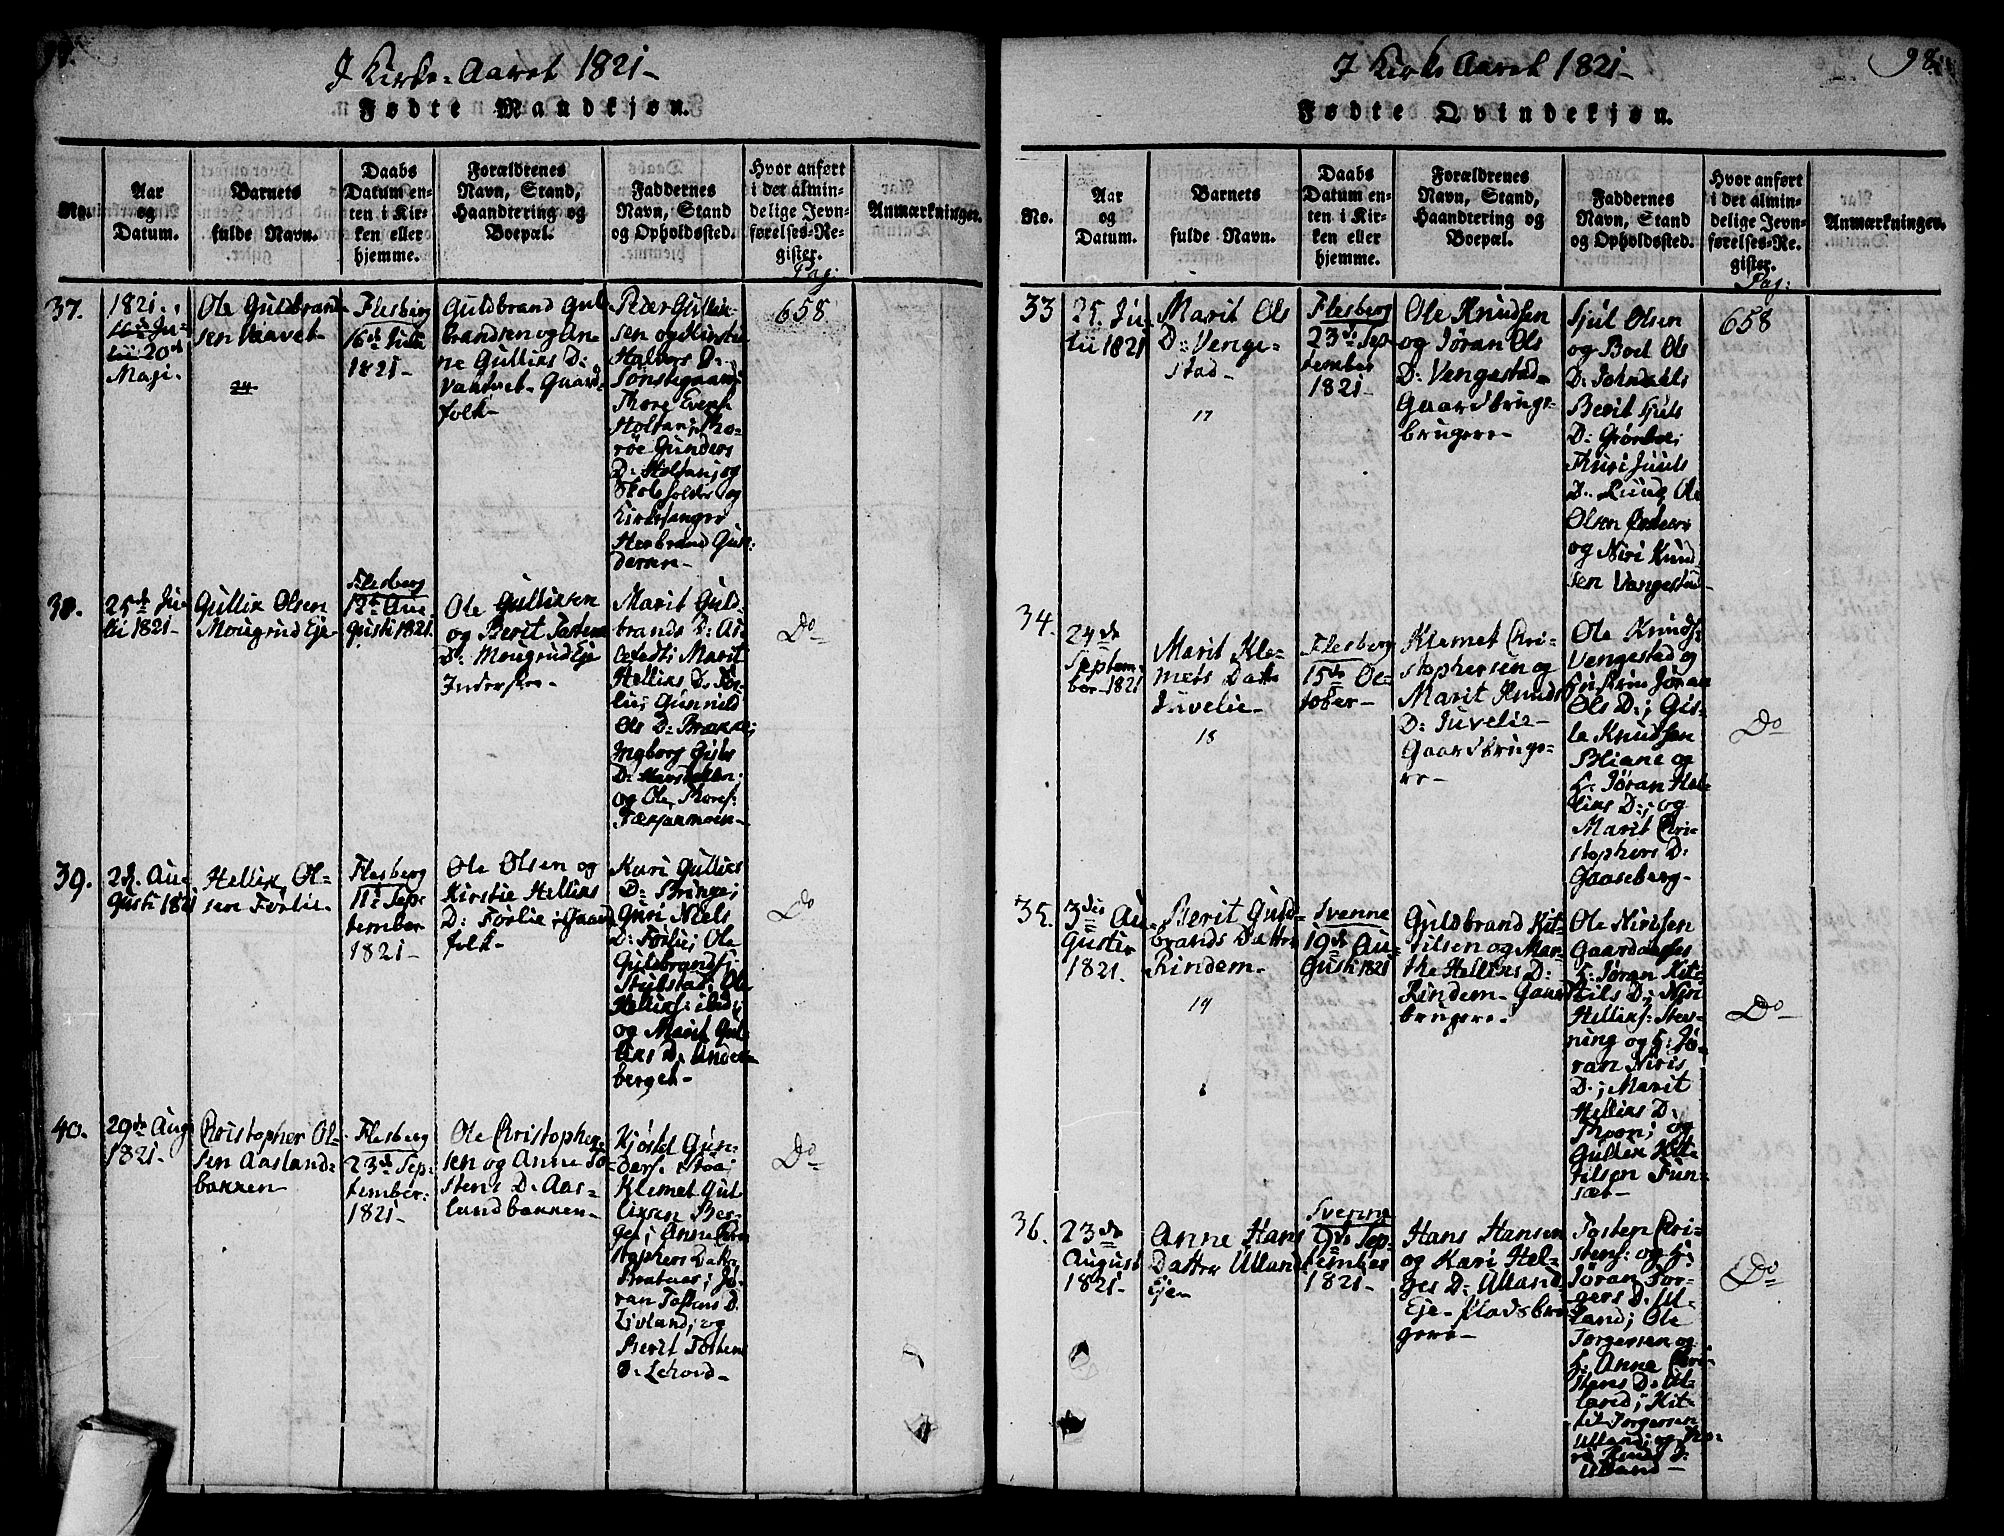 97.
I Kirke-Aaret 1821-
Fødte Mandkjøn.
No.
Aar
og
Datum.
Barnets
fulde Navn.
Daabs
Datum en-
ten i Kir-
ken eller
hjemme.
Forældrenes
Navn, Stand,
Haandtering og
Boepæl.
Faddernes
Navn, Stand
og Opholdssted.
Hvor anført
i det almin-
delige Jevn-
førelses-Re-
gister.
Pag:
Anmærkninger.
37.
1821.
20de
Maji.
Ole Guldbrand-
sen Vaavet
24
Flesberg
1821-
Guldbrand Guld-
brandsen og An-
ne Gulliks D:
Gaard-
folk-
Peder Gullik-
sen og Kirstie
Halvors D:
Thore
Holtan; Tho-
røe Gunders
D: Holtan; og
Skoleholder og
Kirkesanger
Herbrand Gun-
dersen-
658
38.
25de Ju-
lii 1821-
Gullik Olsen
Mougrud Eje-
Flesberg
12te Au-
gusti 1821.
Ole Gulliksen
og Berit Tostens
D: Mougrud Eje
Inderster-
Marit Guld-
brands D:
Marit
Helliks D: Før-
lie; Gunnild
Ols D:
Ingborg
D:
og Ole Thores:
Do-
39.
28. Au-
gusti 1821
Hellik Ol-
sen Førlie-
Flesberg
11te Sep-
tember
1821-
Ole Olsen og
Kirstie Helliks
D: Førlie; Gaard-
folk-
Kari Gulliks
D: Bringe;
Guri Niels
D: Førlie; Ole
Guldbrands:
Ole
Helliks:
og Marit Gul-
liks D: Under-
berget-
Do
40.
29de Aug:
1821-
Christopher Ol-
sen Aasland-
bakken
Flesberg
23de Sep-
tember
1821-
Ole Christopher-
sen og Anne To-
stens D: Aas-
landbakken-
Kjøstel Gun-
ders:
Klemet Gul-
liksen Ber-
get; Anne Chri-
stophers Datter
Brataas; Jø-
ran Tostens D.
Livland; og
Berit Tostens
D. Lehovd-
Do-
98.
I Kirke Aaret 1821-
Fødte Qvindekjøn.
No.
Aar
og
Datum.
Barnets
fulde Navn.
Daabs
Datum en-
ten i Kir-
ken eller
hjemme.
Forældrenes
Navn, Stand,
Haandtering og
Boepæl.
Faddernes
Navn, Stand
og Opholdssted.
Hvor anført
i det almin-
delige Jevn-
førelses-Re-
gister.
Pag:
Anmærkninger.
33
25. Ju-
lii 1821
Marit Ols
D: Venge-
stad-
17
Flesberg
23de Sep-
tember
1821-
Ole Knudsen
og Jøran Ols
D: Vengestad-
Gaardbruge-
brugere-
Olsen
og Boel Ols
D:
Berit
D: Grønboe;
Thuri Juuls
D: Ruud; Ole
Olsen
og Niri Knud-
sen Vengestad-
658
34.
24de
Septem-
ber-1821
Marit Kle-
mets Datter
Juvelie-
18
Flesberg
15de Oc-
tober-
Klemet Chri-
stophersen og
Marit Knuds
D: Juvelie-
Gaardbruge-
re-
Ole Knuds:
Vengestad og
Jøran
Ols D:; Gis-
le Knudsen
Bliane og
H: Jøran Hel-
liks D:; og
Marit Chri-
stophers D:
Gaaseberg-
Do
35.
3die Au-
gustii
1821.
Berit Guld-
brands Datter
Rindem-
19
Svenne
19de Au-
gusti 1821
Guldbrand Kit-
tilsen og Mar-
the Helliks D:
Rindem- Gaard-
brugere-
Ole Nirisen
H: Jøran Kit-
tils D:; Niri
Helliks: Stev-
ning og H: Jø-
ran Niris
D:; Marit
Helliks D:
Moen; og
Gullik Kit-
tilsen Fun-
sæt-
Do-
36.
23de
August
1821-
Anne Hans
Datter Ulland
Eje-
Svenne
9de Sep-
tember
1821-
Hans Hansen
og Kari Hel-
ges D: Ulland
Eje- Pladsbru-
gere-
Tosten Chri-
stens: og H:
Jøran Tor-
gers D: Ul-
land; Ole
Torgersen og
H: Anne Chri-
stens D: Ul-
land; Kit-
til Torgersen
Ulland; og
Knuds D:
Ulland-
Do-